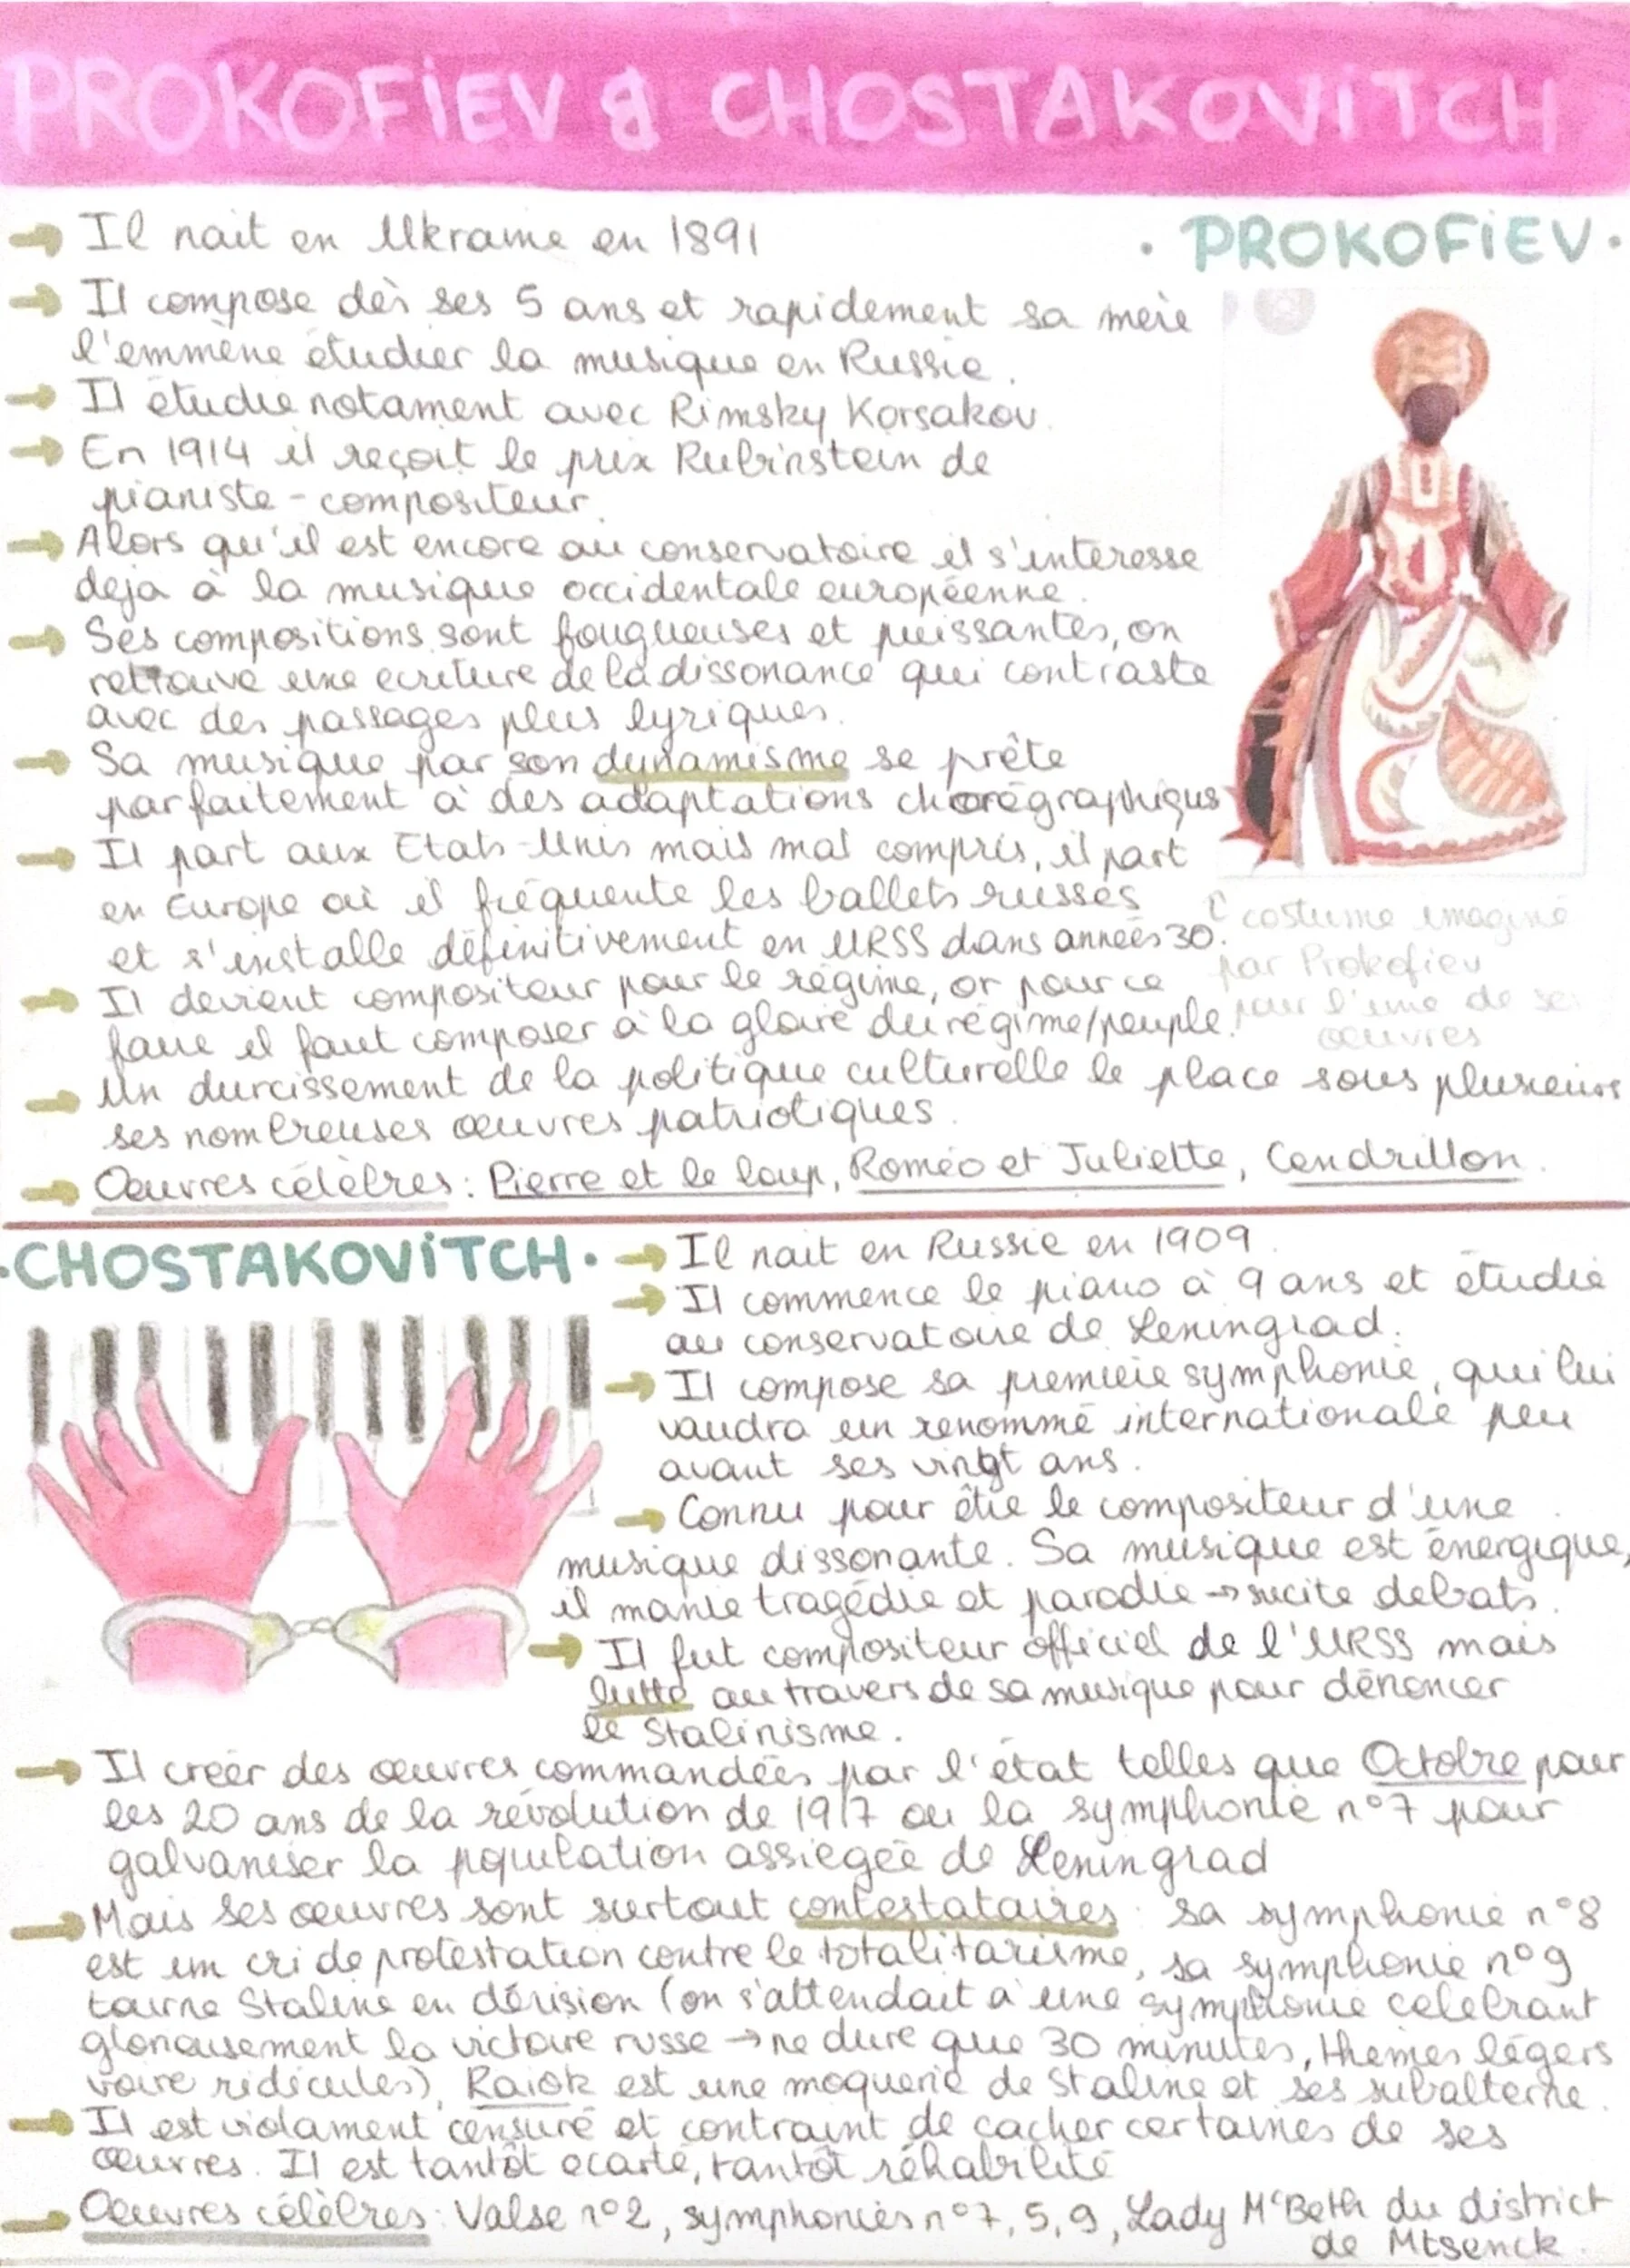 PROKOFiEV & CHOSTAKOViTCH
• PROKOFiEV •
→ Il nait en Ukraine en 1891
→ Il compose dès ses 5 ans et rapidement sa mère
l'emmène étudier la musique en Russie.
→ Il étudie notament avec Rimsky Korsakov.
→ En 1914 il reçoit le prix Rubinstein de
pianiste-compositeur.
→ Alors qu'il est encore au conservatoire il s'interesse
deja à la musique occidentale européenne.
→ Ses compositions sont fougueuses et puissantes, on
retrouve une ecriture de la dissonance qui contraste
avec des passages plus lyriques.
→ Sa musique par son dynamisme se prête
parfaitement à des adaptations chorégraphiqus
→ Il part aux Etats-Unis mais mal compris, il part
en Europe où il fréquente les ballets russes
et s'installe définitivement en URSS dans années 30.
→ Il devient compositeur pour le régime, or pour ce
faire il faut composer à la gloire du régime/peuple.
→ Un durcissement de la politique culturelle le place sous plusieurs
ses nombreuses œuvres patriotiques.
→ Oeuvres célèbres : Pierre et le loup, Roméo et Juliette, Cendrillon.
costume imaginé
par Prokofiev
pour l'une de ses
œuvres
• CHOSTAKOViTCH •
→ Il nait en Russie en 1909.
→ Il commence le piano à 9 ans et étudie
au conservatoire de Leningrad.
→ Il compose sa première symphonie, qui lui
vaudra un renommé internationale peu
avant ses vingt ans.
→ Connu pour être le compositeur d'une
musique dissonante. Sa musique est énergique,
il manie tragédie et parodie → sucite debats.
→ Il fut compositeur officiel de l'URSS mais
lutte au travers de sa musique pour dénoncer
le Stalinisme.
→ Il créer des œuvres commandées par l'état telles que Octobre pour
les 20 ans de la révolution de 1917 ou la symphonie n°7 pour
galvaniser la population assiégée de Leningrad
→ Mais ses œuvres sont surtout contestataires : sa symphonie n°8
est un cri de protestation contre le totalitarisme, sa symphonie n°9
tourne Staline en dérision (on s'attendait à une symphonie celebrant
glorieusement la victoire russe → ne dure que 30 minutes, thèmes légers
voire ridicules), Raiok est une moquerie de Staline et ses subalterne.
→ Il est violament censuré et contraint de cacher certaines de ses
œuvres. Il est tantôt ecarté, tantôt réhabilité
→ Oeuvres célèbres : Valse n°2, symphonies n°7, 5, 9, Lady McBeth du district
de Mtsenck.